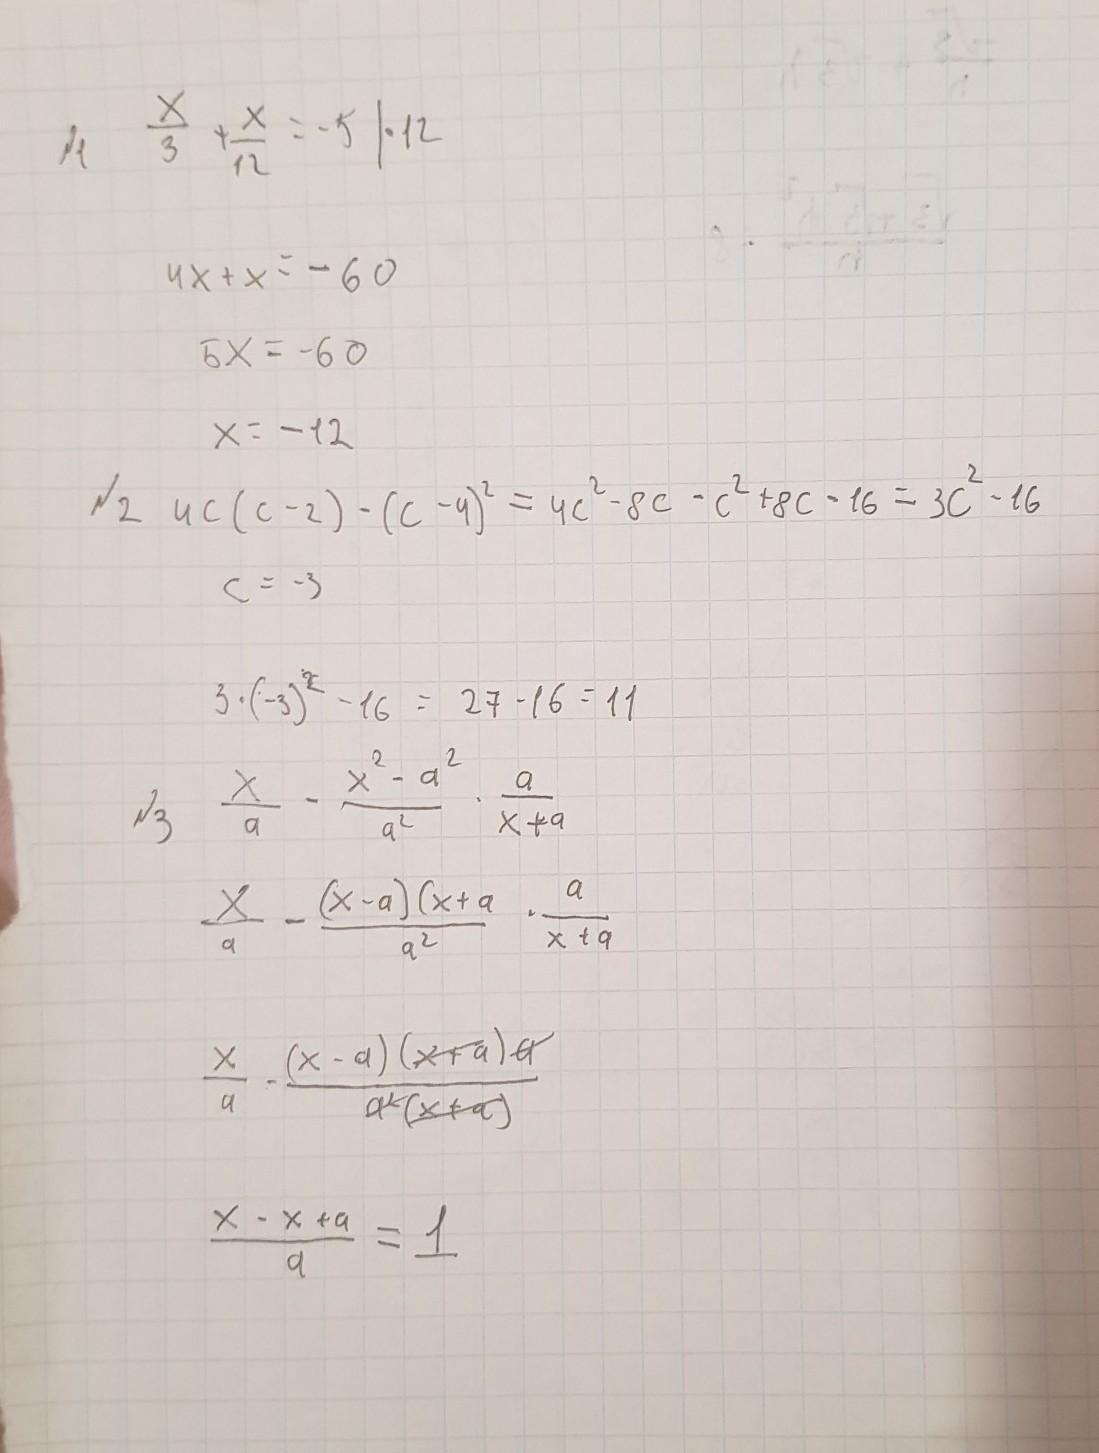 №1 x/3 + x/12 = -5 | · 12
4x + x = -60
5x = -60
x = -12
№2 4c(c - 2) - (c - 4)² = 4c² - 8c - c² + 8c - 16 = 3c² - 16
c = -3
3·(-3)² - 16 = 27 - 16 = 11
№3 x/a - (x² - a²)/a² · a/(x + a)
x/a - (x - a)(x + a/a² · a/(x + a)
x/a - (x - a)(x + a)a/a²(x + a)
(x - x + a)/a = 1